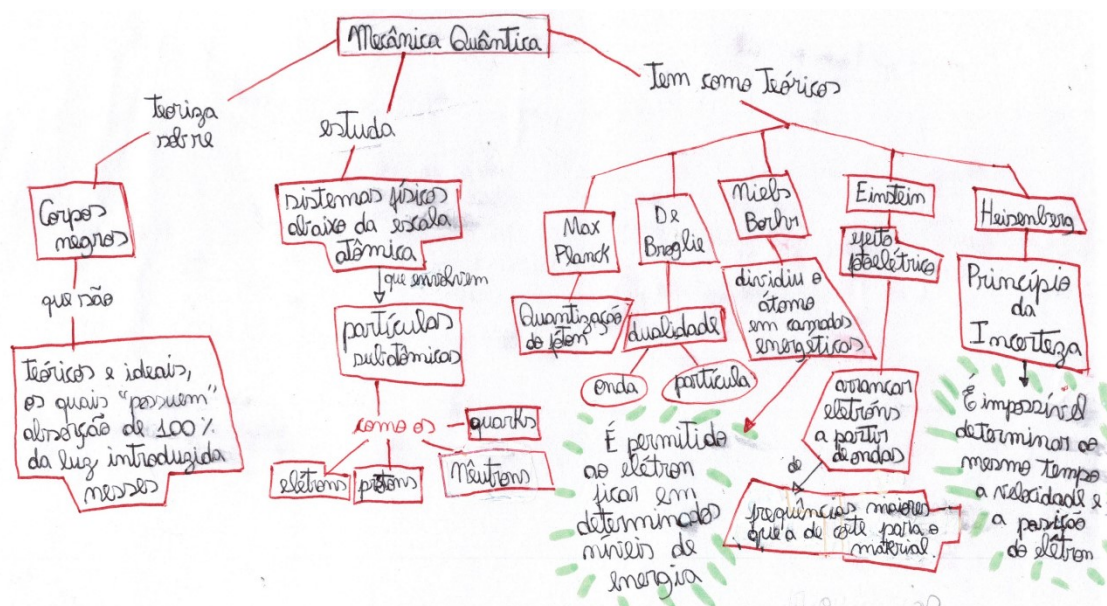 Mecânica Quântica
teoriza
sobre
Corpos
negros
que são
teóricos e ideais,
os quais "possuem"
absorção de 100%
da luz introduzida
nesses
estuda
sistemas físicos
abaixo da escala
atômica
que envolvem
partículas
subatômicas
como os
quarks
elétrons
prótons
Nêutrons
Tem como Teóricos
Max
Planck
Quantização
do fóton
De
Broglie
dualidade
onda
partícula
Niels
Borhr
dividiu o
átomo
em camadas
energéticas
É permitido
ao elétron
ficar em
determinados
níveis de
energia
Einstein
efeito
fotoelétrico
arrancar
eletróns
a partir
de ondas
de
freqüências maiores
que a de corte para o
material
Heisenberg
Princípio
da
Incerteza
É impossível
determinar ao
mesmo tempo
a velocidade e
a posição
do elétron